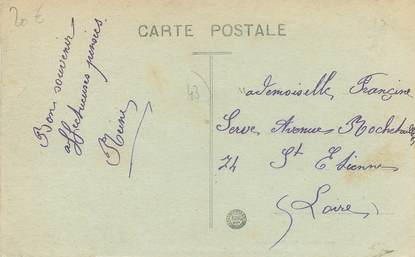 20 €
CARTE POSTALE
Bon souvenir
affectueuses pensées.
Reine
43
Mademoiselle Francine
Serve Avenue Rochetaillée
24 St Etienne
(Loire)